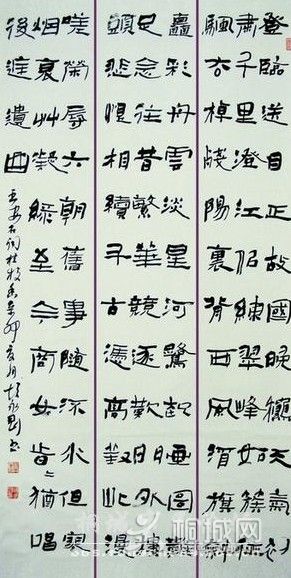 登臨送目正故國晚秋天氣初
肅千里澄江似練翠峰如簇征
颿去棹殘陽裏背西風酒旗斜
矗彩舟雲淡星河鷺起畫圖難
足念往昔繁華競逐歎門外樓
頭悲恨相續千古憑高對此漫
嗟榮辱六朝舊事隨流水但寒
烟衰艸凝綠至今商女旹〻猶唱
後庭遺曲
王安石詞桂枝香辛卯夏月
桐城网